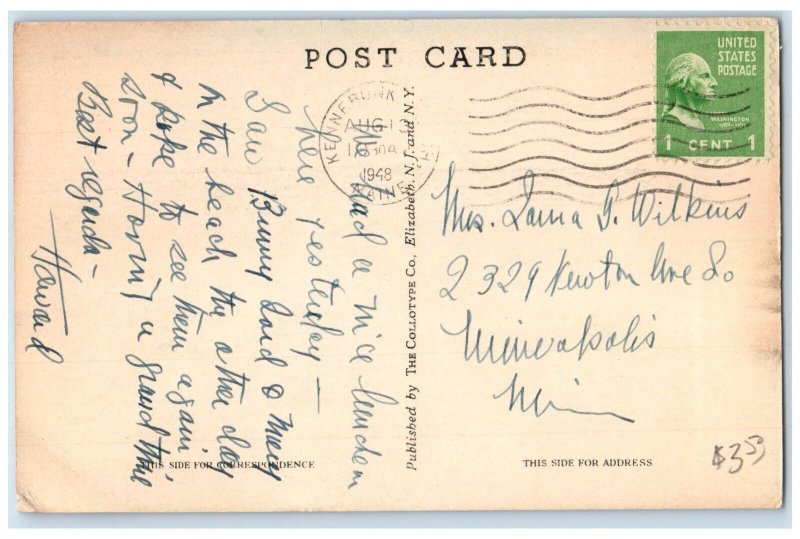 POST CARD
UNITED
STATES
POSTAGE
WASHINGTON
1 CENT 1
KENNEBUNK
AUG 1
1948
MAINE
We had a nice luncheon
here yesterday —
I saw Bunny Lord & Mary
on the beach the other day
& hope to see them again
soon - Having a grand time
Best regards -
Howard
Published by THE COLLOTYPE Co., Elizabeth, N. J. and N. Y.
Mrs. Lama G. Wilkins
2329 Newton Ave So
Minneapolis
Minn
THIS SIDE FOR CORRESPONDENCE
THIS SIDE FOR ADDRESS